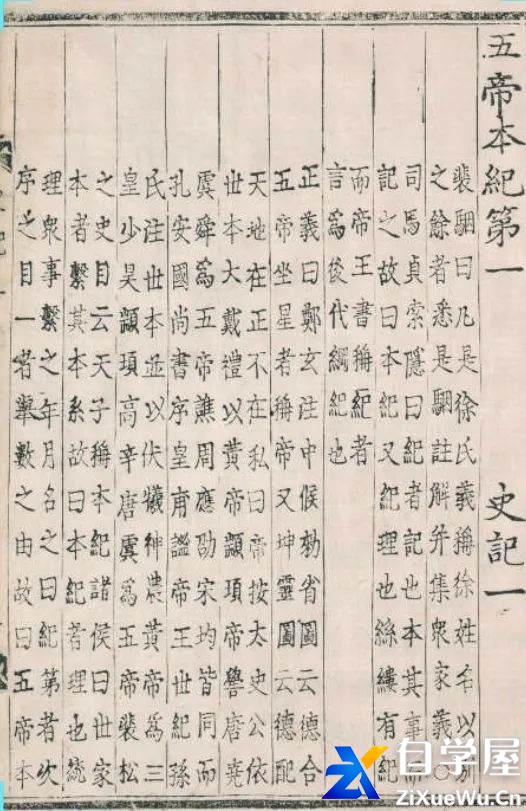 五帝本紀第一 史記一
裴駰曰凡是徐氏義稱徐姓名以別
之餘者悉是駰註解并集衆家義○
司馬貞索隱曰紀者記也本其事而
記之故曰本紀又紀理也絲縷有紀
而帝王書稱紀者
言爲後代綱紀也
正義曰鄭玄注中候勑省圖云德合
五帝坐星者稱帝又坤靈圖云德配
天地在正不在私曰帝按太史公依
世本大戴禮以黄帝顓頊帝嚳唐堯
虞舜爲五帝譙周應劭宋均皆同而
孔安國尚書序皇甫謐帝王世紀孫
氏注世本並以伏犧神農黄帝爲三
皇少昊顓頊高辛唐虞爲五帝裴松
之史目云天子稱本紀諸侯曰世家
本者繫其本系故曰本紀者理也統
理衆事繫之年月名之曰紀第者次
序之目一者舉數之由故曰五帝本
自学屋
ZiXueWu.Cn